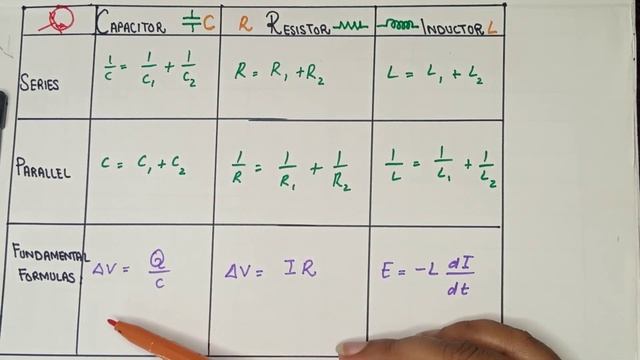 CAPACITOR C
R RESISTOR
INDUCTOR L
SERIES
1/C = 1/C₁ + 1/C₂
R = R₁ + R₂
L = L₁ + L₂
PARALLEL
C = C₁ + C₂
1/R = 1/R₁ + 1/R₂
1/L = 1/L₁ + 1/L₂
FUNDAMENTAL
FORMULAS
ΔV = Q/C
ΔV = IR
E = -L dI/dt